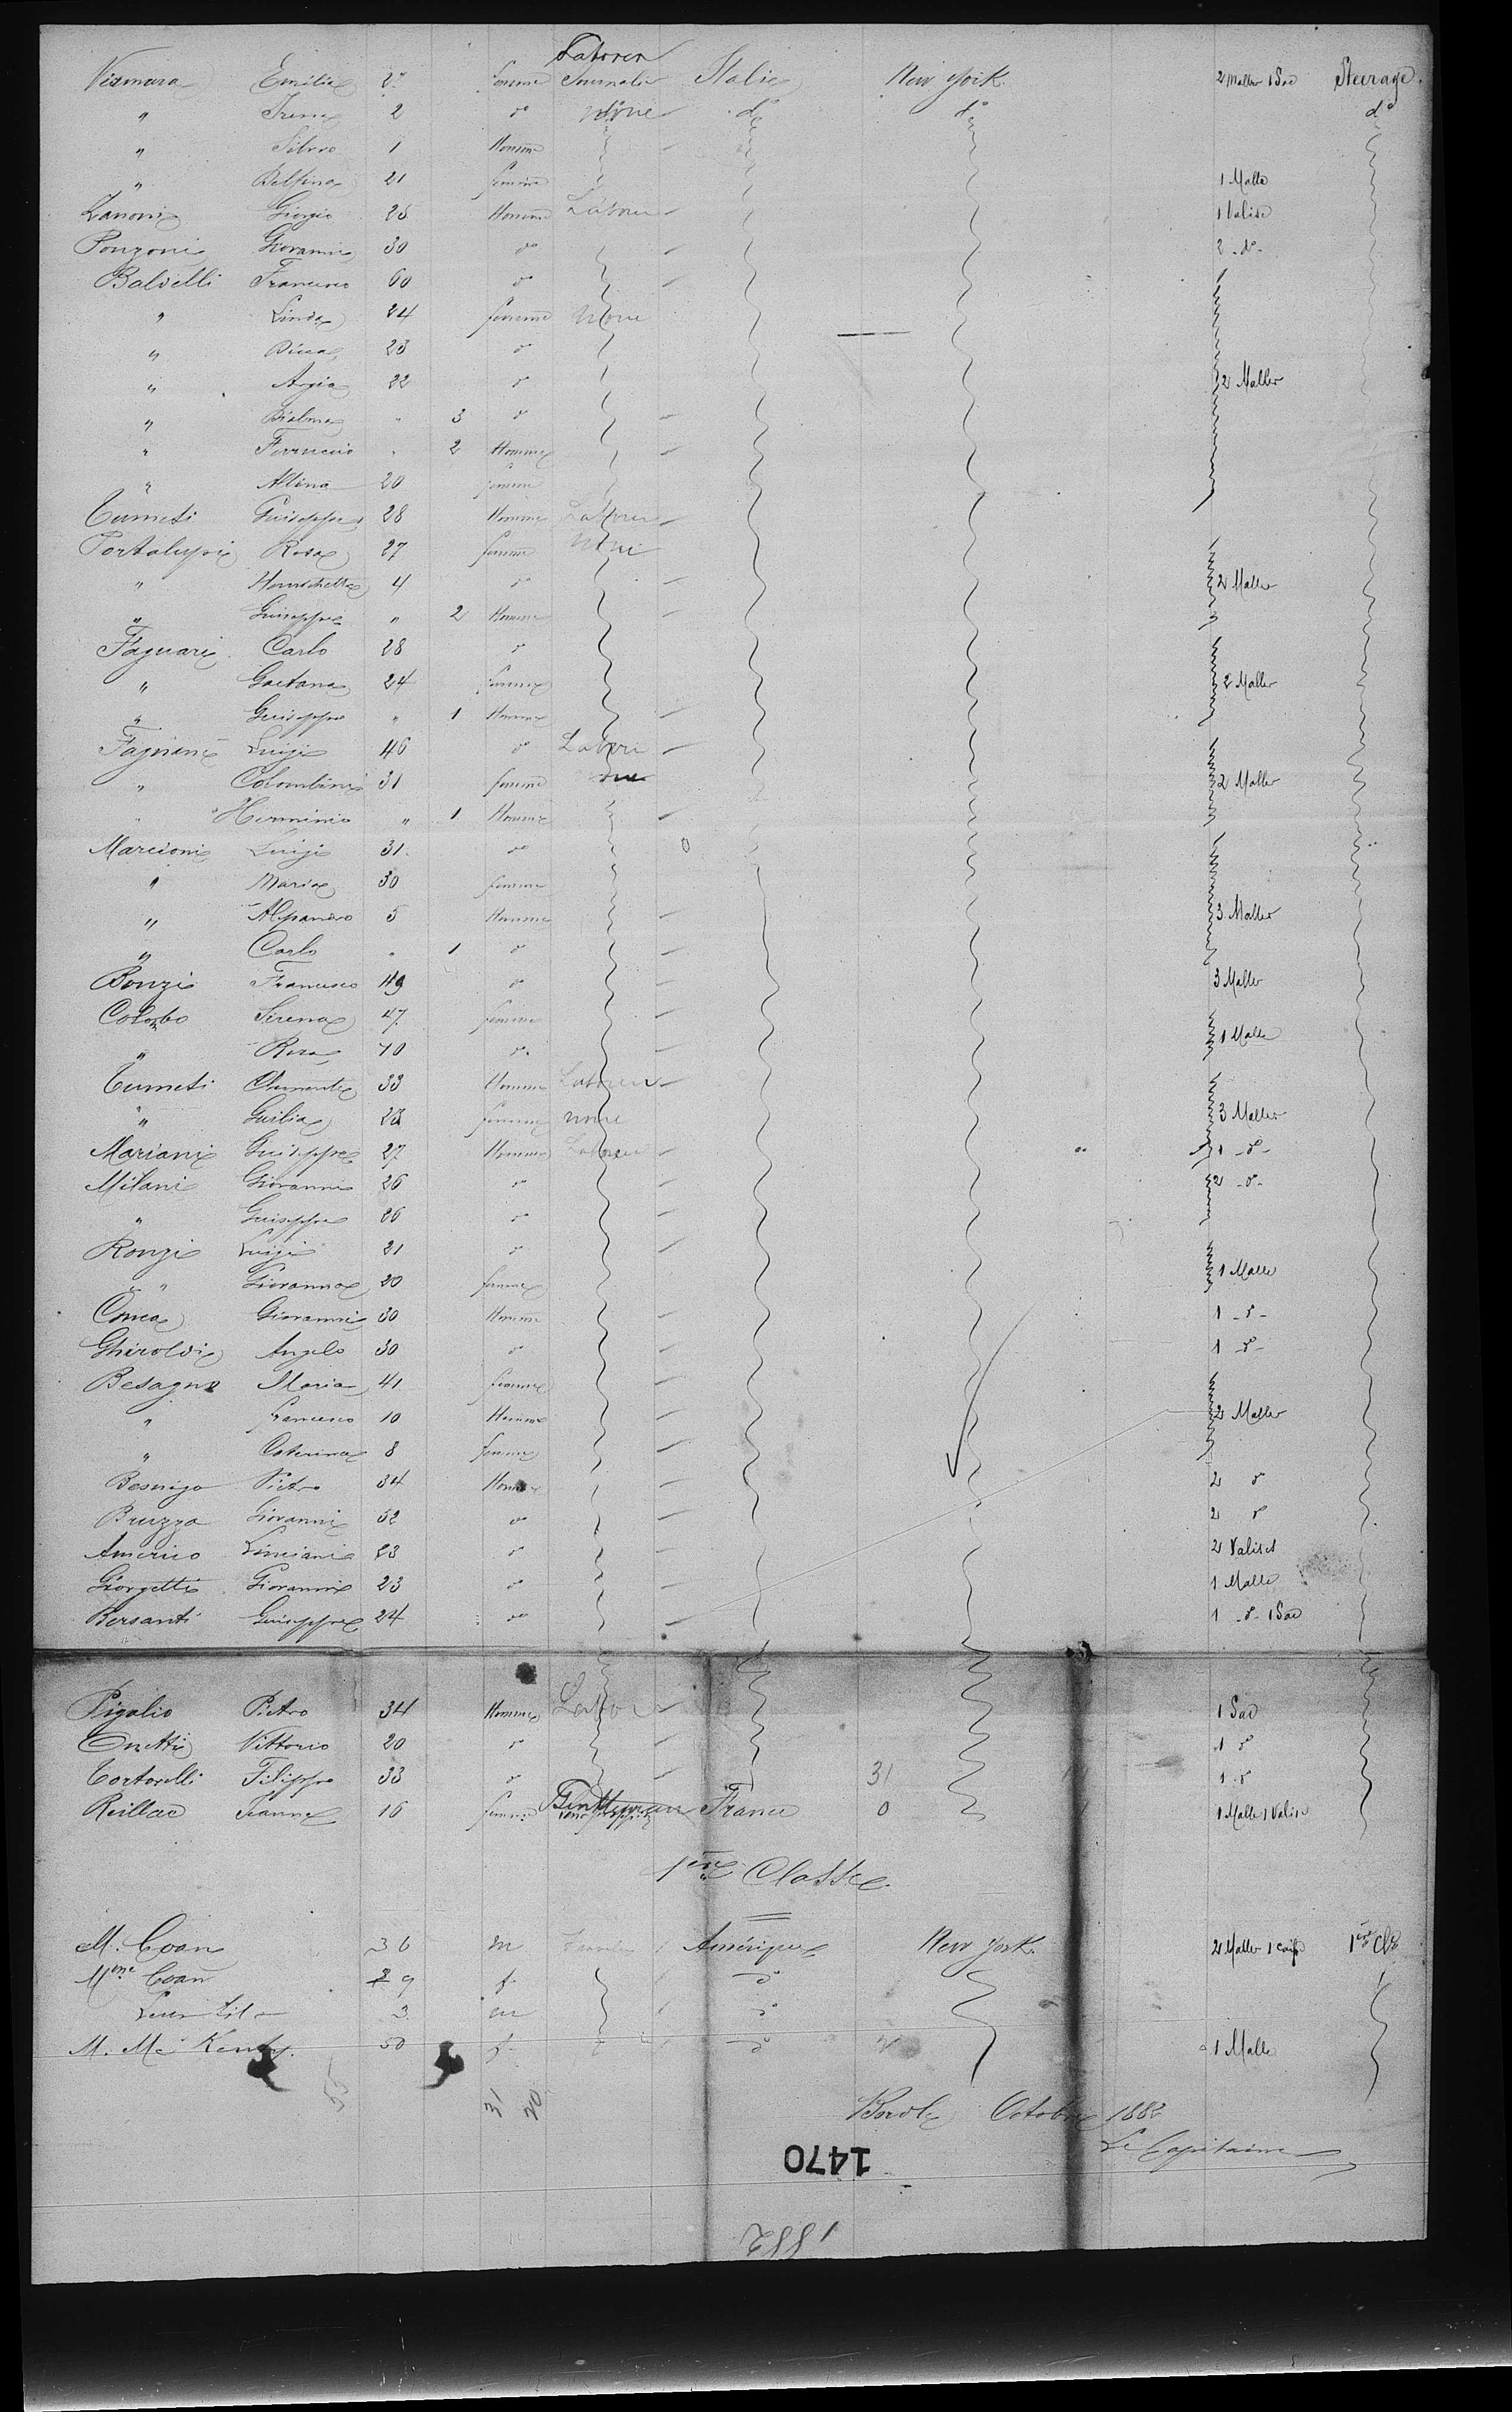 Vismara Emilia 2 femme Laborer Journalier Italie New York 2 Malles 1 Sac Steerage
" Irene 2 do none do do do
" Silvio 1 Homme
" Delfina 21 femme 1 Malle
Zanoni Giorgio 25 Homme Laborer 1 Valise
Ponzoni Giovanni 30 do 2 - do -
Baldelli Francesco 60 do
" Linda 24 femme None
" 23 do
" Argia 22 do 2 Malles
" Dialma " 3 do
" Ferruccio " 2 Homme
" Allina 20 femme
Tumeti Guiseppe 28 Homme Laborer
Portalupi Rosa 27 femme None
" Henrichetta 4 do 2 Malles
" Guiseppe " 2 Homme
Fagnari Carlo 28 do
" Gaetana 24 femme 2 Malles
" Guiseppe " 1 Homme
Fagnani Luigi 46 do Laborer
" Colombina 31 femme none 2 Malles
" Herminio " 1 Homme
Marcioni Luigi 31 do 0
" Maria 30 femme
" Alessandro 5 Homme 3 Malles
" Carlo " 1 do
Bonzi Francesco 49 do 3 Malles
Colombo Sirena 47 femme
" Rosa 10 do 1 Malle
Tumeti Clemente 33 Homme Laborer
" Guilia 28 femme none 3 Malles
Mariani Guiseppe 27 Homme Laborer 1 - do -
Milani Giovanni 26 do 2 - do -
" Guiseppe 26 do
Ronzi Luigi 21 do
" Giovanna 20 femme 1 Malle
Giovanni 30 Homme 1 - do -
Ghiroldi Angelo 30 do 1 - do -
Besagno Maria 41 femme
" francesco 10 Homme 2 Malles
" Caterina 8 femme
Pietro 34 Homme 2 do
Bruzza Giovanni 52 do 2 do
Americo Linciani 23 do 2 Valises
Giorgetti Giovanni 23 do 1 Malle
Bersanti Guiseppe 24 do 1 - do - 1 Sac
Pigalio Pietro 34 Homme Laborer 1 Sac
Onetti Vittorio 20 do 1 do
Tortorelli Filippo 33 do 31 1 do
Reillac Jeanne 16 femme France 0 1 Malle 1 Valise
1ère Classe
M. Coan 36 m Amérique New York. 2 Malles 1 1ère Cl
Mme Coan 29 f. do
Leur fils 3 m do
M. Mc 50 f. do 1 Malle
55
31 20
Octobre 1882
Le Capitaine
1470
1882